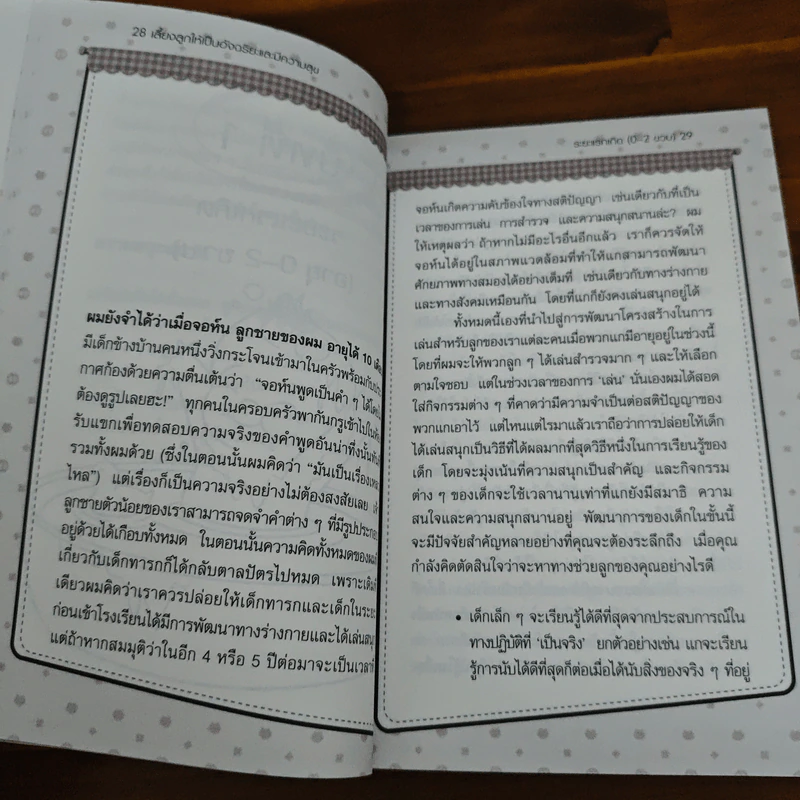 28 เลี้ยงลูกให้เป็นอัจฉริยะและมีความสุข
ผมยังจำได้ว่าเมื่อจอห์น ลูกชายของผม อายุได้ 10
มีเด็กข้างบ้านคนหนึ่งวิ่งกระโจนเข้ามาในครัวพร้อมกับ
กาศก้องด้วยความตื่นเต้นว่า “จอห์นพูดเป็นคำ ๆ ได้
ต้องดูรูปเลยฮะ!” ทุกคนในครอบครัวพากันกรูเข้าไปใน
รับแขกเพื่อทดสอบความจริงของคำพูดอันน่าทึ่งนั้น
รวมทั้งผมด้วย (ซึ่งในตอนนั้นผมคิดว่า “มันเป็นเรื่อง
ไหล”) แต่เรื่องก็เป็นความจริงอย่างไม่ต้องสงสัยเลย
ลูกชายตัวน้อยของเราสามารถจดจำคำต่าง ๆ ที่มีรูปประกอบ
อยู่ด้วยได้เกือบทั้งหมด ในตอนนั้นความคิดทั้งหมดของ
เกี่ยวกับเด็กทารกก็ได้กลับตาลปัตรไปหมด เพราะ
เดียวผมคิดว่าเราควรปล่อยให้เด็กทารกและเด็กใน
ก่อนเข้าโรงเรียนได้มีการพัฒนาทางร่างกายและได้เล่น
แต่ถ้าหากสมมุติว่าในอีก 4 หรือ 5 ปีต่อมาจะเป็น
ระยะแรกเกิด (0-2 ขวบ) 29
จอห์นเกิดความคับข้องใจทางสติปัญญา เช่นเดียวกับที่เป็น
เวลาของการเล่น การสำรวจ และความสนุกสนานล่ะ? ผม
ให้เหตุผลว่า ถ้าหากไม่มีอะไรอื่นอีกแล้ว เราก็ควรจัดให้
จอห์นได้อยู่ในสภาพแวดล้อมที่ทำให้แกสามารถพัฒนา
ศักยภาพทางสมองได้อย่างเต็มที่ เช่นเดียวกับทางร่างกาย
และทางสังคมเหมือนกัน โดยที่แกก็ยังคงเล่นสนุกอยู่ได้
ทั้งหมดนี้เองที่นำไปสู่การพัฒนาโครงสร้างในการ
เล่นสำหรับลูกของเราแต่ละคนเมื่อพวกแกมีอายุอยู่ในช่วงนี้
โดยที่ผมจะให้พวกลูก ๆ ได้เล่นสำรวจมาก ๆ และให้เลือก
ตามใจชอบ แต่ในช่วงเวลาของการ ‘เล่น’ นั่นเองผมได้สอด
ใส่กิจกรรมต่าง ๆ ที่คาดว่ามีความจำเป็นต่อสติปัญญาของ
พวกแกเอาไว้ แต่ไหนแต่ไรมาแล้วเราถือว่าการปล่อยให้เด็ก
ได้เล่นสนุกเป็นวิธีที่ได้ผลมากที่สุดวิธีหนึ่งในการเรียนรู้ของ
เด็ก โดยจะมุ่งเน้นที่ความสนุกเป็นสำคัญ และกิจกรรม
ต่าง ๆ ของเด็กจะใช้เวลานานเท่าที่แกยังมีสมาธิ ความ
สนใจและความสนุกสนานอยู่ พัฒนาการของเด็กในขั้นนี้
จะมีปัจจัยสำคัญหลายอย่างที่คุณจะต้องระลึกถึง เมื่อคุณ
กำลังคิดตัดสินใจว่าจะหาทางช่วยลูกของคุณอย่างไรดี
• เด็กเล็ก ๆ จะเรียนรู้ได้ดีที่สุดจากประสบการณ์ใน
ทางปฏิบัติที่ ‘เป็นจริง’ ยกตัวอย่างเช่น แกจะเรียน
รู้การนับได้ดีที่สุดก็ต่อเมื่อได้นับสิ่งของจริง ๆ ที่อยู่